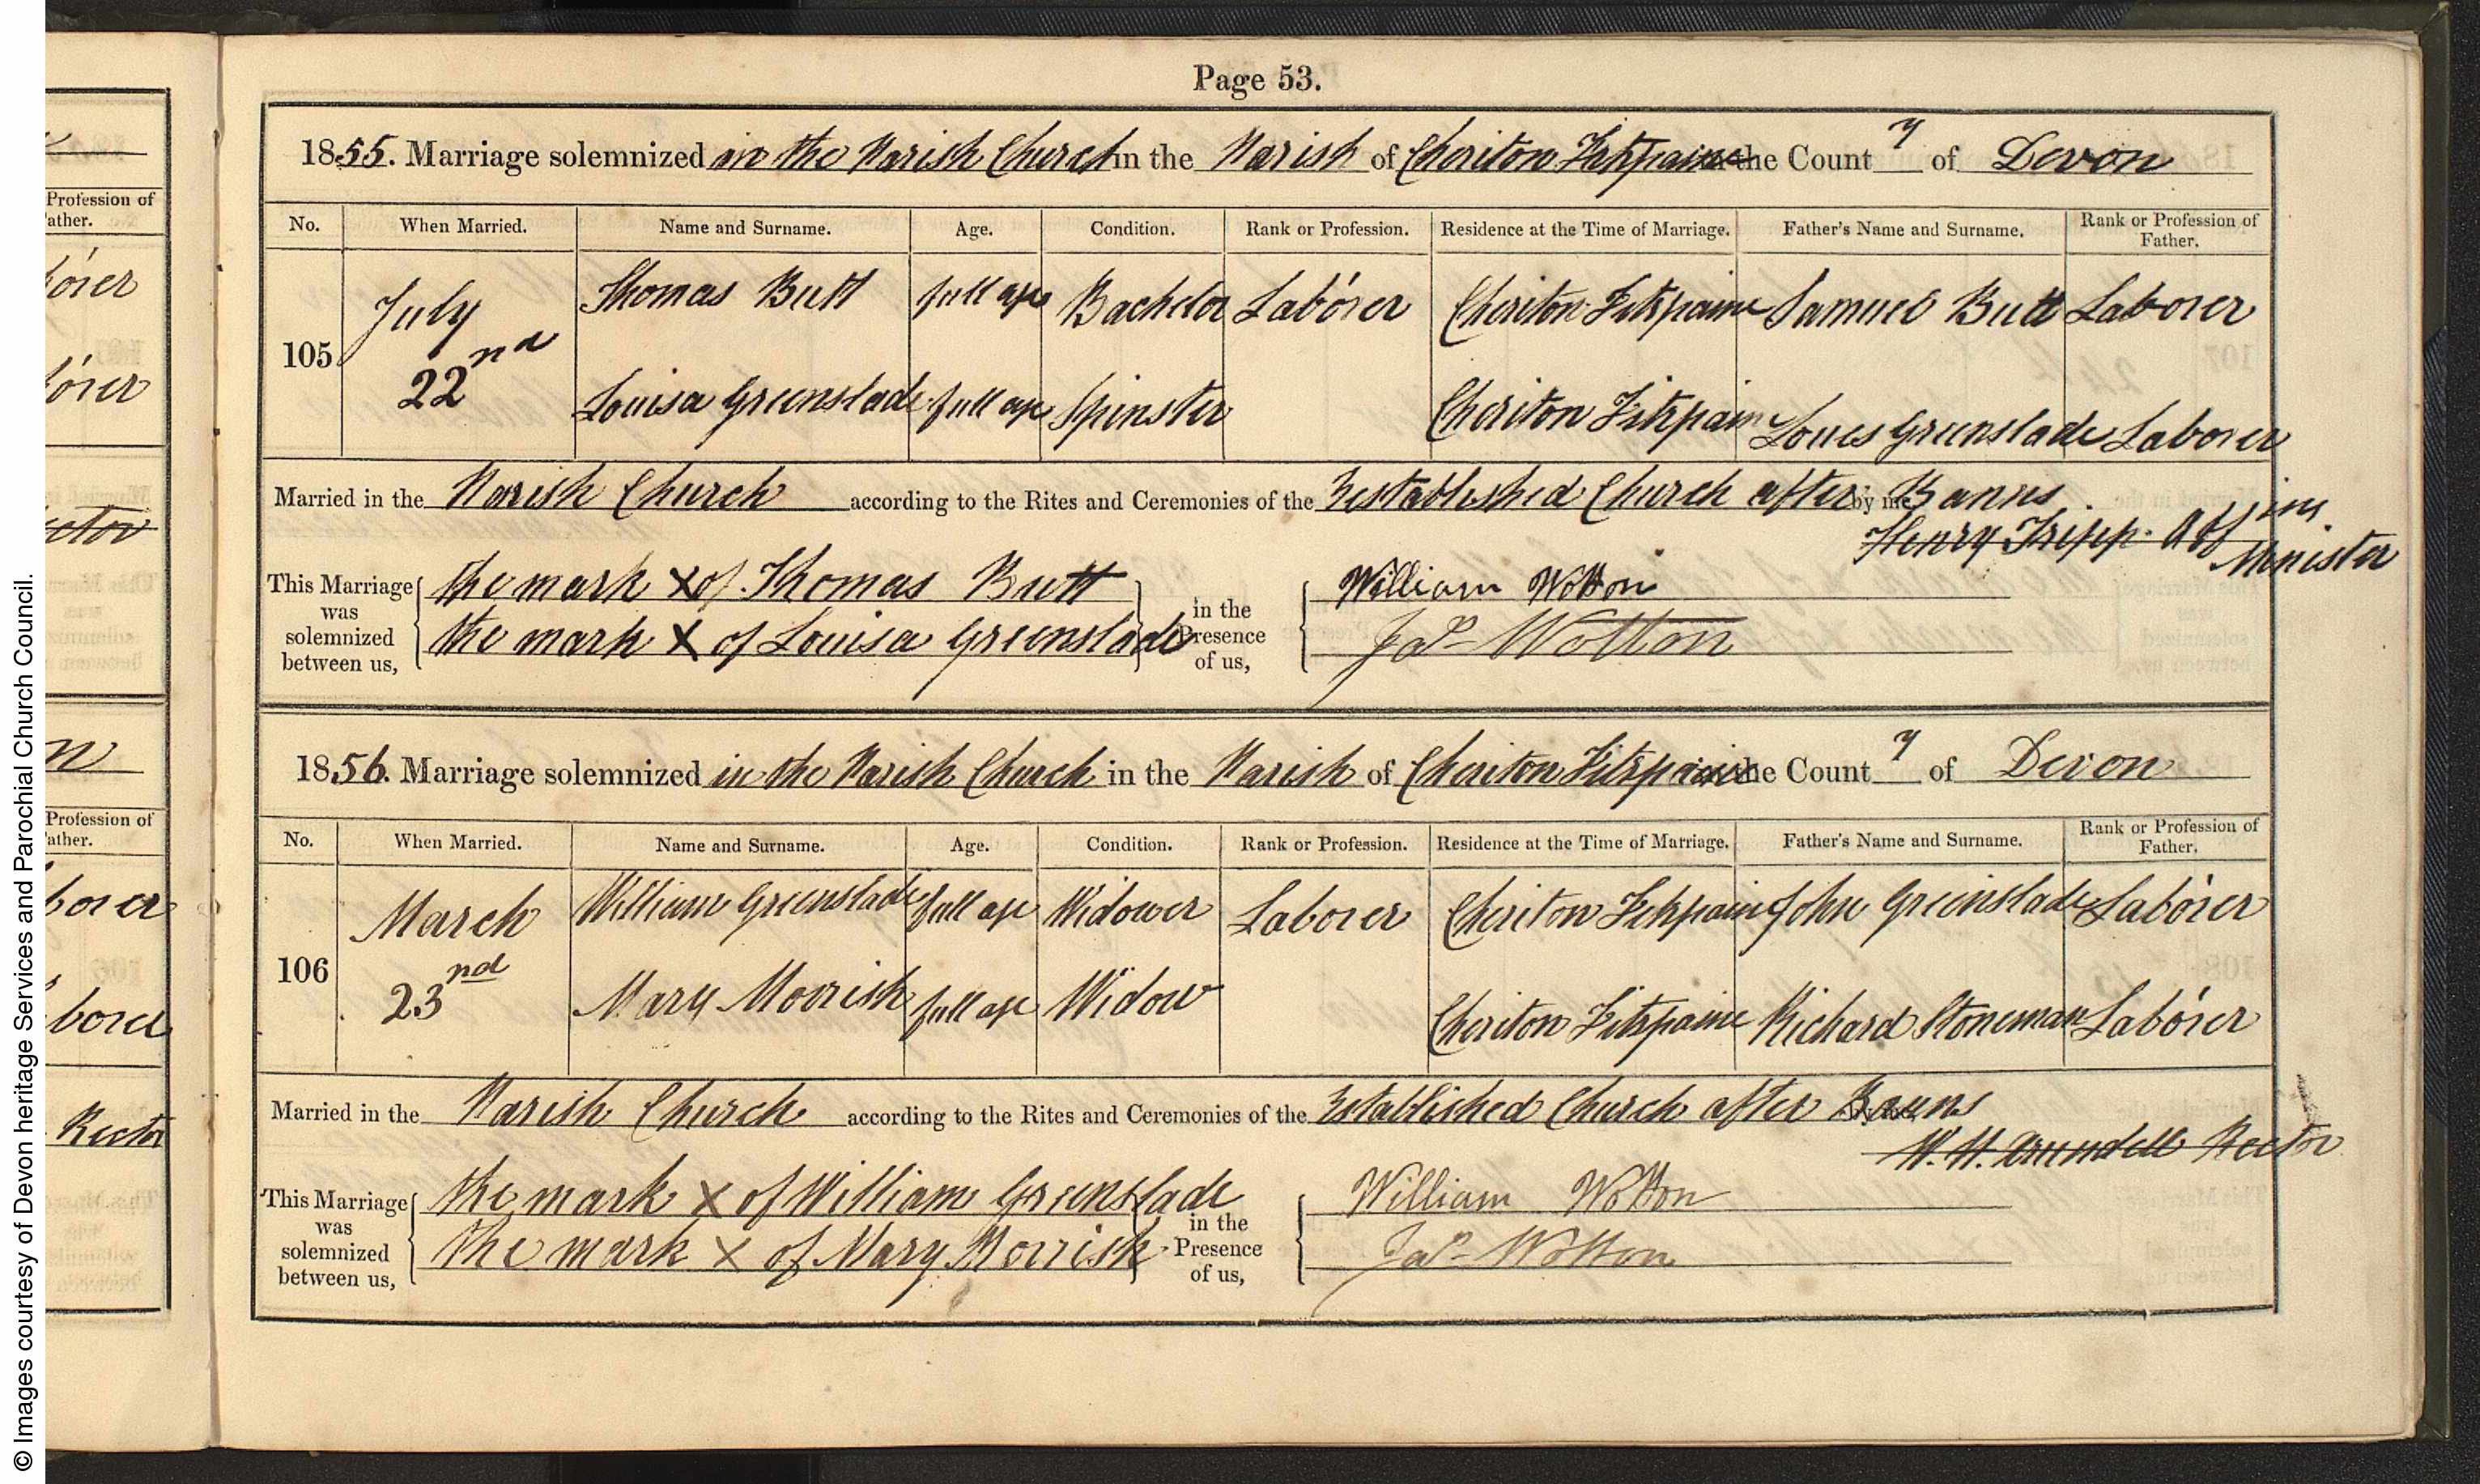 Page 53.
1855. Marriage solemnized in the Parish Church in the Parish of Cheriton Fitzpaine in the County of Devon
No. When Married. Name and Surname. Age. Condition. Rank or Profession. Residence at the Time of Marriage. Father's Name and Surname. Rank or Profession of Father.
105 July 22nd Thomas Butt full age Bachelor Laborer Cheriton Fitzpaine Samuel Butt Laborer
Louisa Greenslade full age Spinster Cheriton Fitzpaine Greenslade Laborer
Married in the Parish Church according to the Rites and Ceremonies of the Established Church after Banns by me,
Henry Tripp. Minister
This Marriage was solemnized between us, the mark X of Thomas Butt in the Presence of us, William Wotton
the mark X of Louisa Greenslade Jas Wotton
1856. Marriage solemnized in the Parish Church in the Parish of Cheriton Fitzpaine in the County of Devon
No. When Married. Name and Surname. Age. Condition. Rank or Profession. Residence at the Time of Marriage. Father's Name and Surname. Rank or Profession of Father.
106 March 23nd William Greenslade full age Widower Laborer Cheriton Fitzpaine John Greenslade Laborer
Mary Morrish full age Widow Cheriton Fitzpaine Richard Stoneman Laborer
Married in the Parish Church according to the Rites and Ceremonies of the Established Church after Banns by me,
W. H. Arundell Rector
This Marriage was solemnized between us, the mark X of William Greenslade in the Presence of us, William Wotton
The mark X of Mary Morrish Jas Wotton
Profession of
ather.
Profession of
ather.
Rector
© Images courtesy of Devon heritage Services and Parochial Church Council.